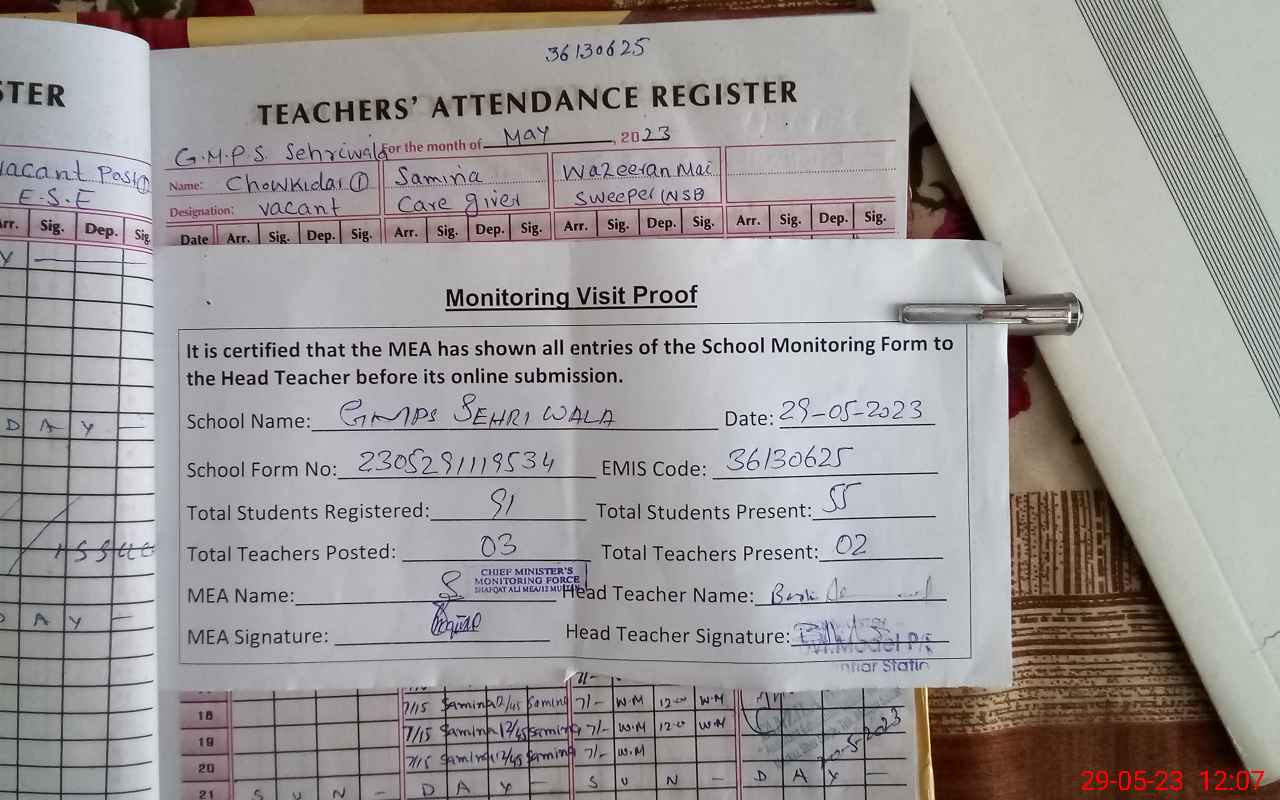 STER
vacant Post ①
E.S.E
Arr. Sig. Dep. Sig.
D A Y -
D A Y -
36130625
TEACHERS' ATTENDANCE REGISTER
G.M.P.S. Sehriwala For the month of May, 2023
Name: Chowkidar ① Samina Wazeeran Mai
Designation: vacant Care giver Sweeper NSB
Date Arr. Sig. Dep. Sig. Arr. Sig. Dep. Sig. Arr. Sig. Dep. Sig. Arr. Sig. Dep. Sig.
Monitoring Visit Proof
It is certified that the MEA has shown all entries of the School Monitoring Form to
the Head Teacher before its online submission.
School Name: GMPS SEHRI WALA Date: 29-05-2023
School Form No: 2305291119534 EMIS Code: 36130625
Total Students Registered: 91 Total Students Present: 55
Total Teachers Posted: 03 Total Teachers Present: 02
CHIEF MINISTER'S
MONITORING FORCE
SHAFQAT ALI MEA/12
MEA Name: Head Teacher Name:
MEA Signature: Head Teacher Signature:
Model P/S
Statin
18 7/15 Samina 12/45 Samina 7/- W.M 12-00 W.M
19 7/15 Samina 12/45 Samina 7/- W.M 12-00 W.M
20 7/15 Samina 12/45 Samina 7/- W.M
21 S U N - D A Y - S U N - D A Y -
29-05-23 12:07